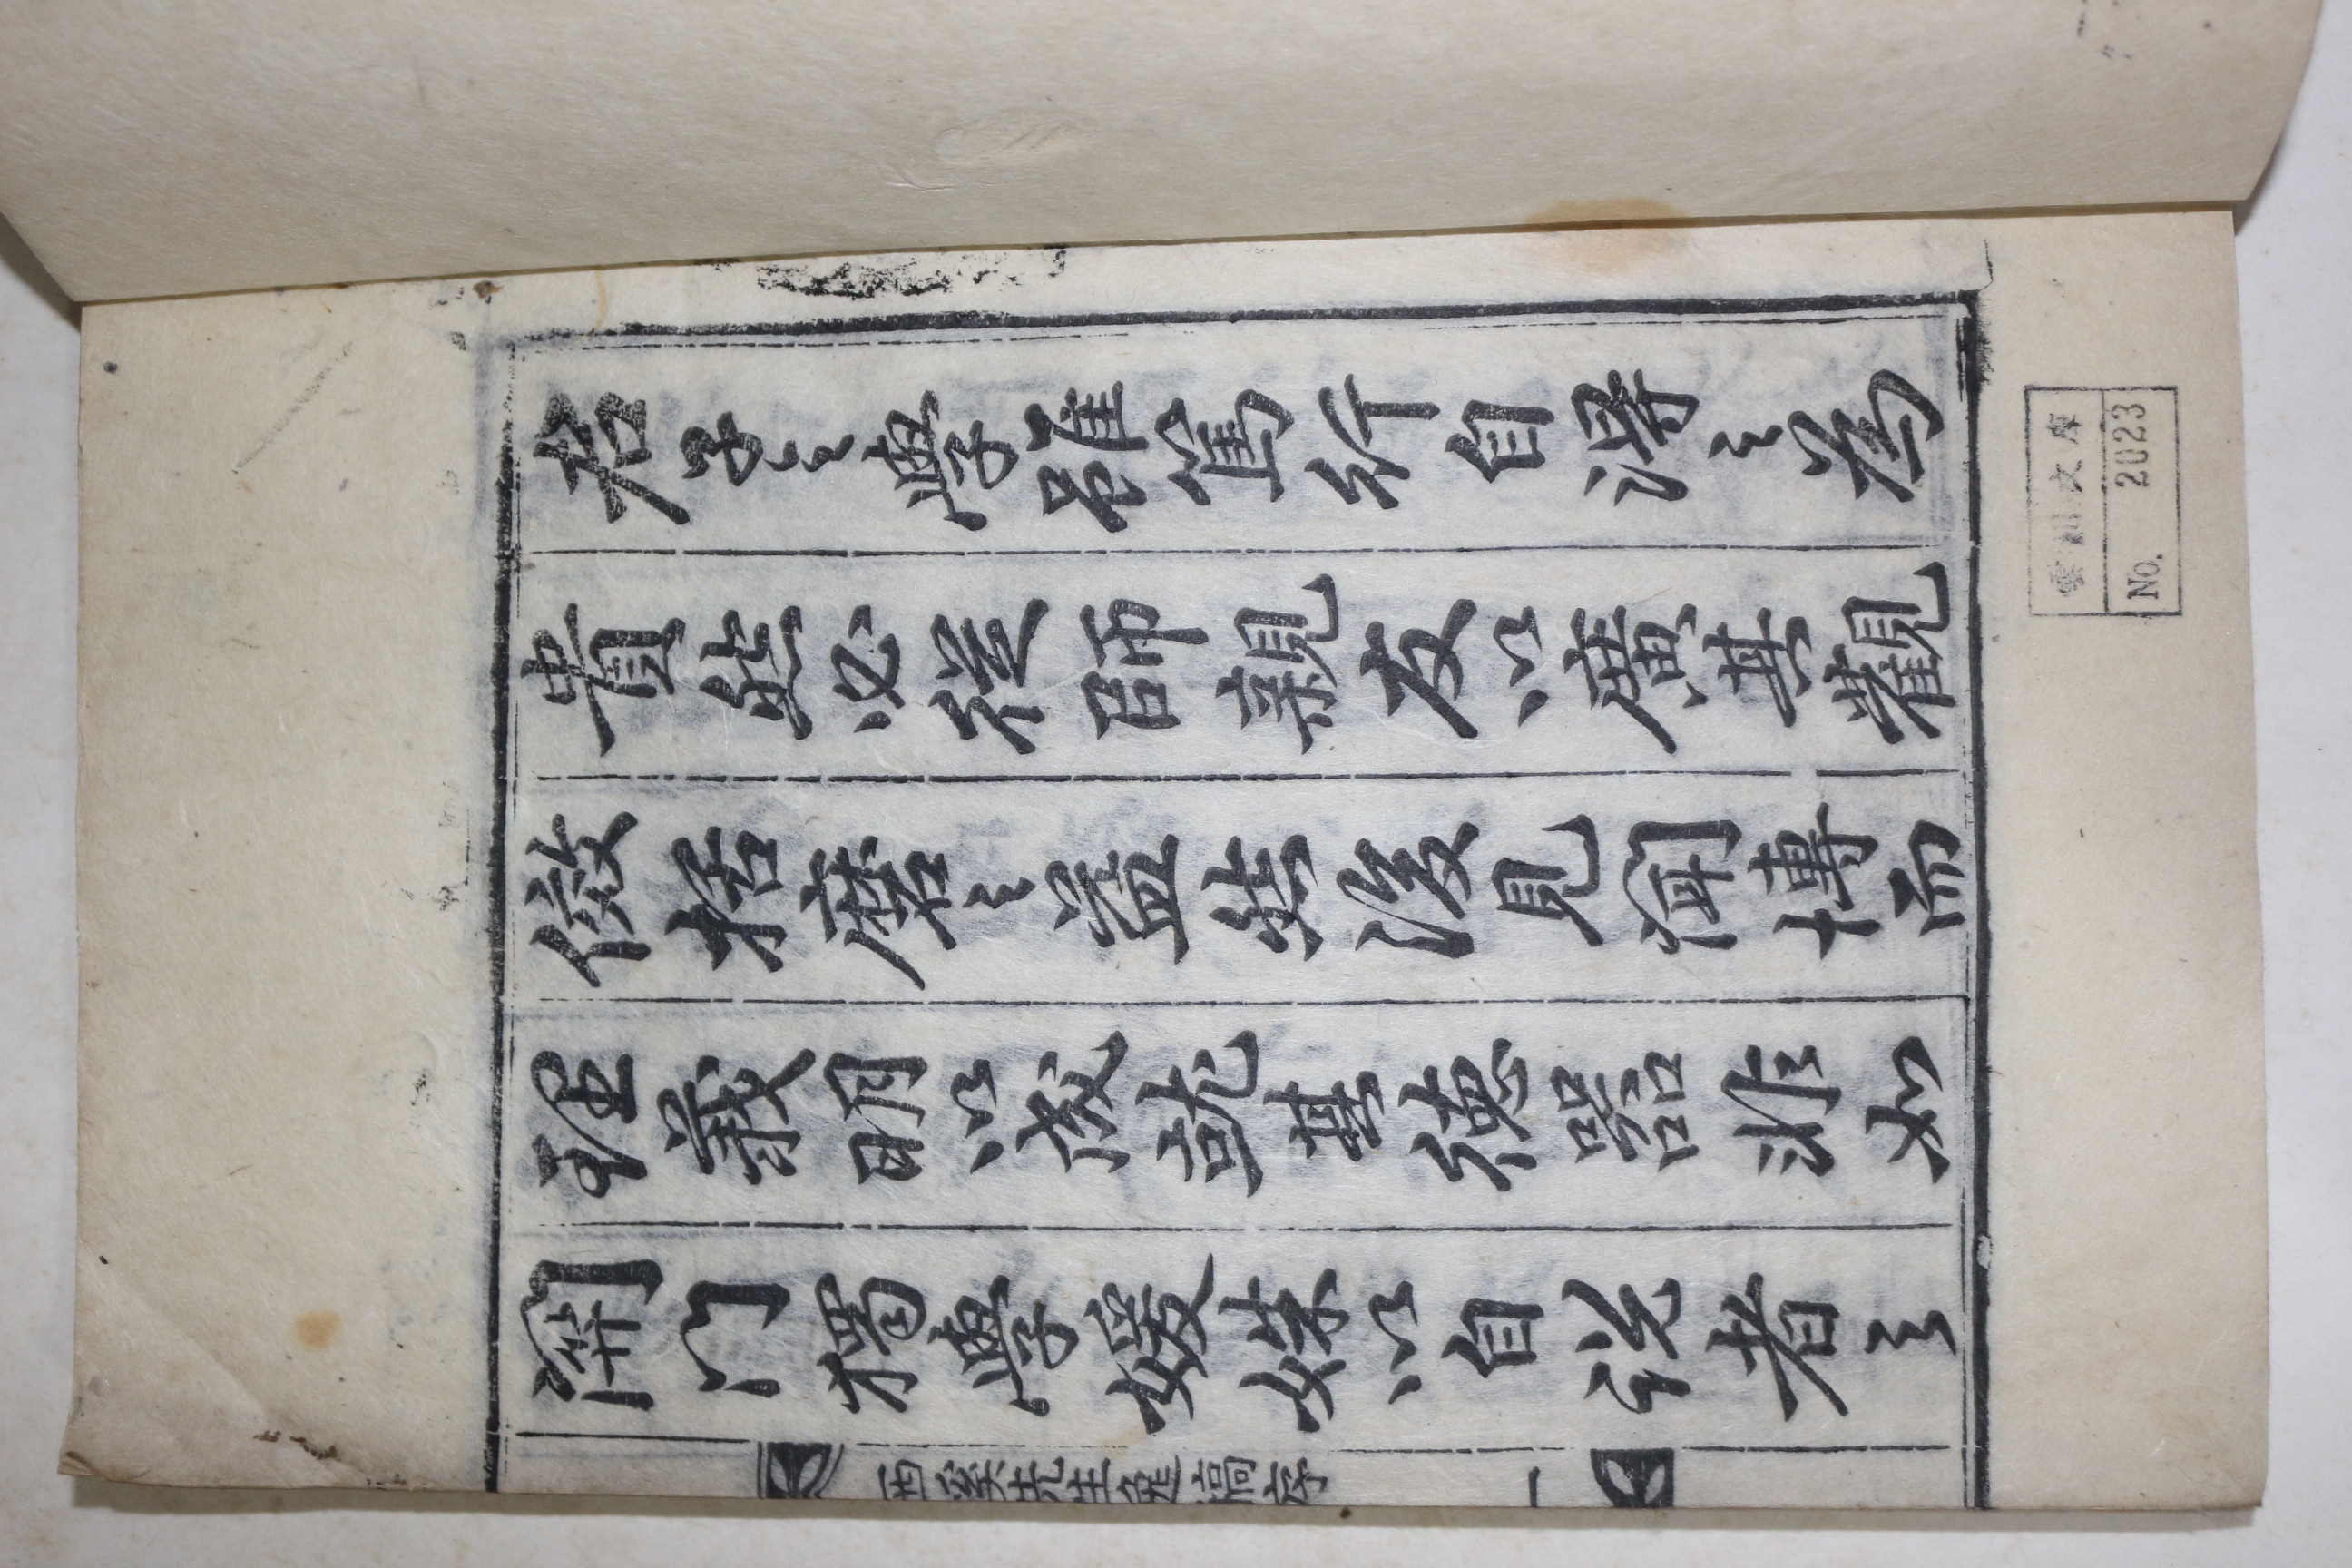 君子之學雖篤行自得之爲
貴然必從師親友以廣其觀
傚括磨之益然後見聞博而
理義明以成就其德器非如
關門獨學媛姝以自説者之
西溪先生逸稿序
一
雲川文庫
No. 2023